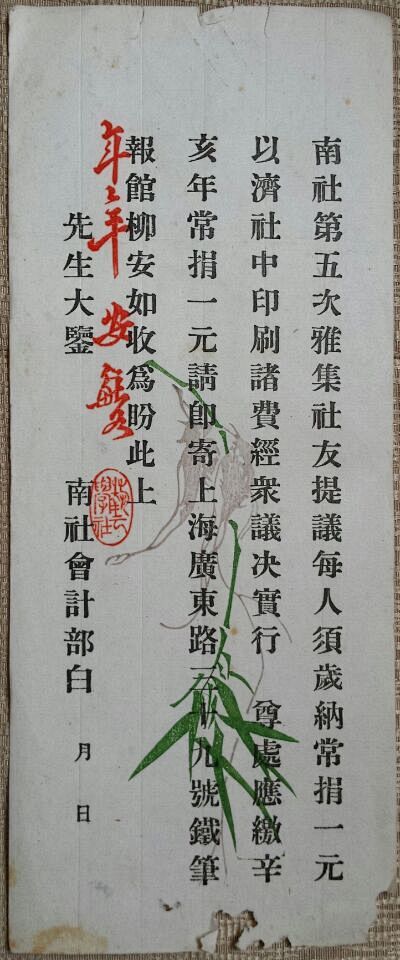 南社第五次雅集社友提議每人須歲納常捐一元
以濟社中印刷諸費經衆議决實行　尊處應繳辛
亥年常捐一元請卽寄上海廣東路一百十九號鐵筆
報館柳安如收爲盼此上
先生大鑒　南社會計部白　月　日
年年安